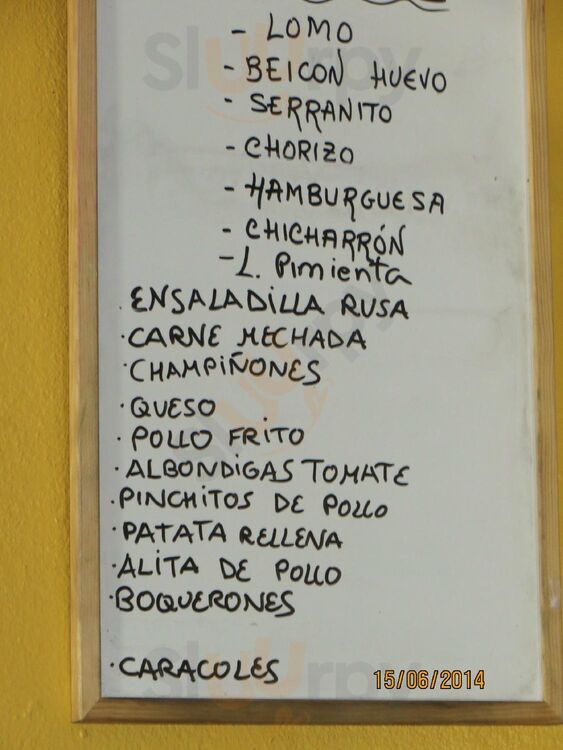 - LOMO
- BEICON HUEVO
- SERRANITO
- CHORIZO
- HAMBURGUESA
- CHICHARRÓN
- L. Pimienta
. ENSALADILLA RUSA
· CARNE MECHADA
· CHAMPIÑONES
· QUESO
· POLLO FRITO
· ALBONDIGAS TOMATE
· PINCHITOS DE POLLO
· PATATA RELLENA
· ALITA DE POLLO
· BOQUERONES
· CARACOLES
15/06/2014
Sluurpy
Sluurpy
Sluurpy